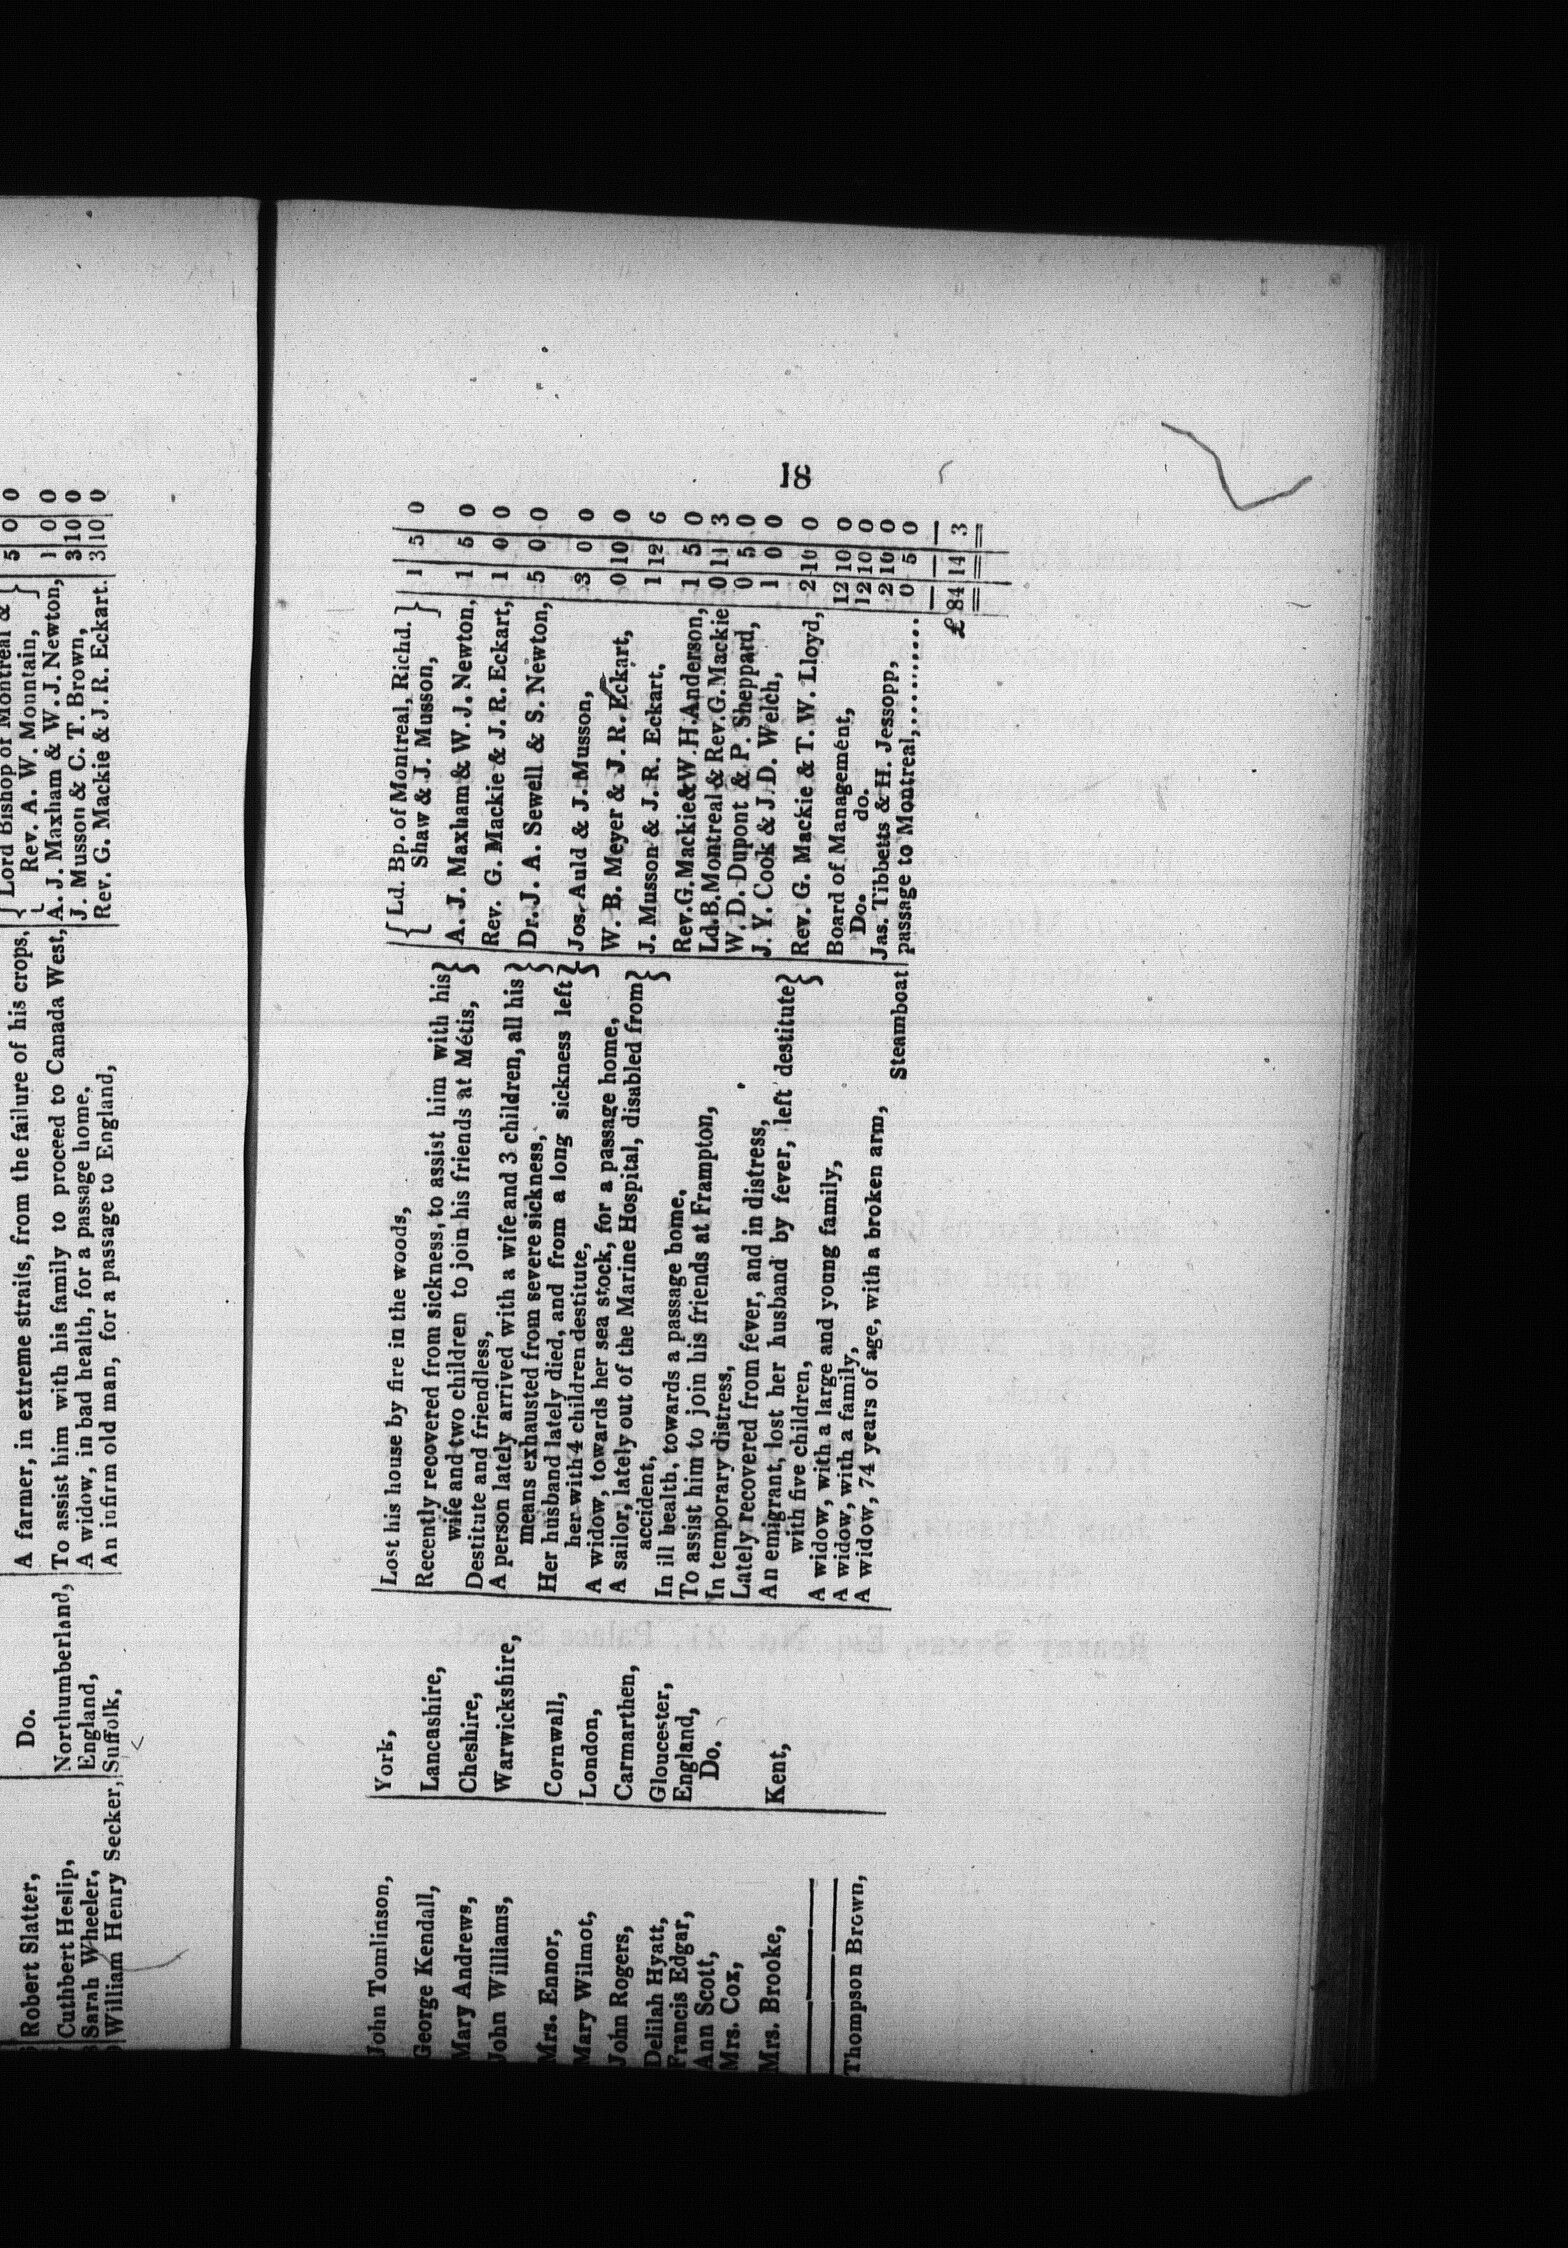 Lord Bishop of Montreal &
Robert Slatter, Do. A farmer, in extreme straits, from the failure of his crops. Rev. A. W. Mountain, 5 0 0
Cuthbert Heslip, Northumberland, To assist him with his family to proceed to Canada West, A. J. Maxham & W. J. Newton, 1 0 0
Sarah Wheeler, England, A widow, in bad health, for a passage home. J. Musson & C. T. Brown, 3 10 0
William Henry Secker, Suffolk, An infirm old man, for a passage to England, Rev. G. Mackie & J. R. Eckart. 3 10 0
18
John Tomlinson, York, Lost his house by fire in the woods, { Ld. Bp. of Montreal, Richd. } 1 5 0
Shaw & J. Musson,
George Kendall, Lancashire, Recently recovered from sickness, to assist him with his } A. J. Maxham & W. J. Newton, 1 5 0
wife and two children to join his friends at Métis,
Mary Andrews, Cheshire, Destitute and friendless, Rev. G. Mackie & J. R. Eckart, 1 0 0
John Williams, Warwickshire, A person lately arrived with a wife and 3 children, all his } Dr. J. A. Sewell & S. Newton, 5 0 0
means exhausted from severe sickness,
Mrs. Ennor, Cornwall, Her husband lately died, and from a long sickness left } Jos. Auld & J. Musson, 3 0 0
her with 4 children destitute,
Mary Wilmot, London, A widow, towards her sea stock, for a passage home, W. B. Meyer & J. R. Eckart, 0 10 0
John Rogers, Carmarthen, A sailor, lately out of the Marine Hospital, disabled from } J. Musson & J. R. Eckart. 1 12 6
accident,
Delilah Hyatt, Gloucester, In ill health, towards a passage home. Rev. G. Mackie & W. H. Anderson, 1 5 0
Francis Edgar, England, To assist him to join his friends at Frampton, Ld. B. Montreal & Rev. G. Mackie 0 11 3
Ann Scott, Do. In temporary distress, W. D. Dupont & P. Sheppard, 0 5 0
Mrs. Cox, Lately recovered from fever, and in distress, J. Y. Cook & J. D. Welch, 1 0 0
Mrs. Brooke, Kent, An emigrant, lost her husband by fever, left destitute } Rev. G. Mackie & T. W. Lloyd, 2 10 0
with five children,
A widow, with a large and young family, Board of Management, 12 10 0
A widow, with a family, Do. do. 12 10 0
Thompson Brown, A widow, 74 years of age, with a broken arm, Jas. Tibbetts & H. Jessopp, 2 10 0
Steamboat passage to Montreal,.......... 0 5 0
£ 84 14 3